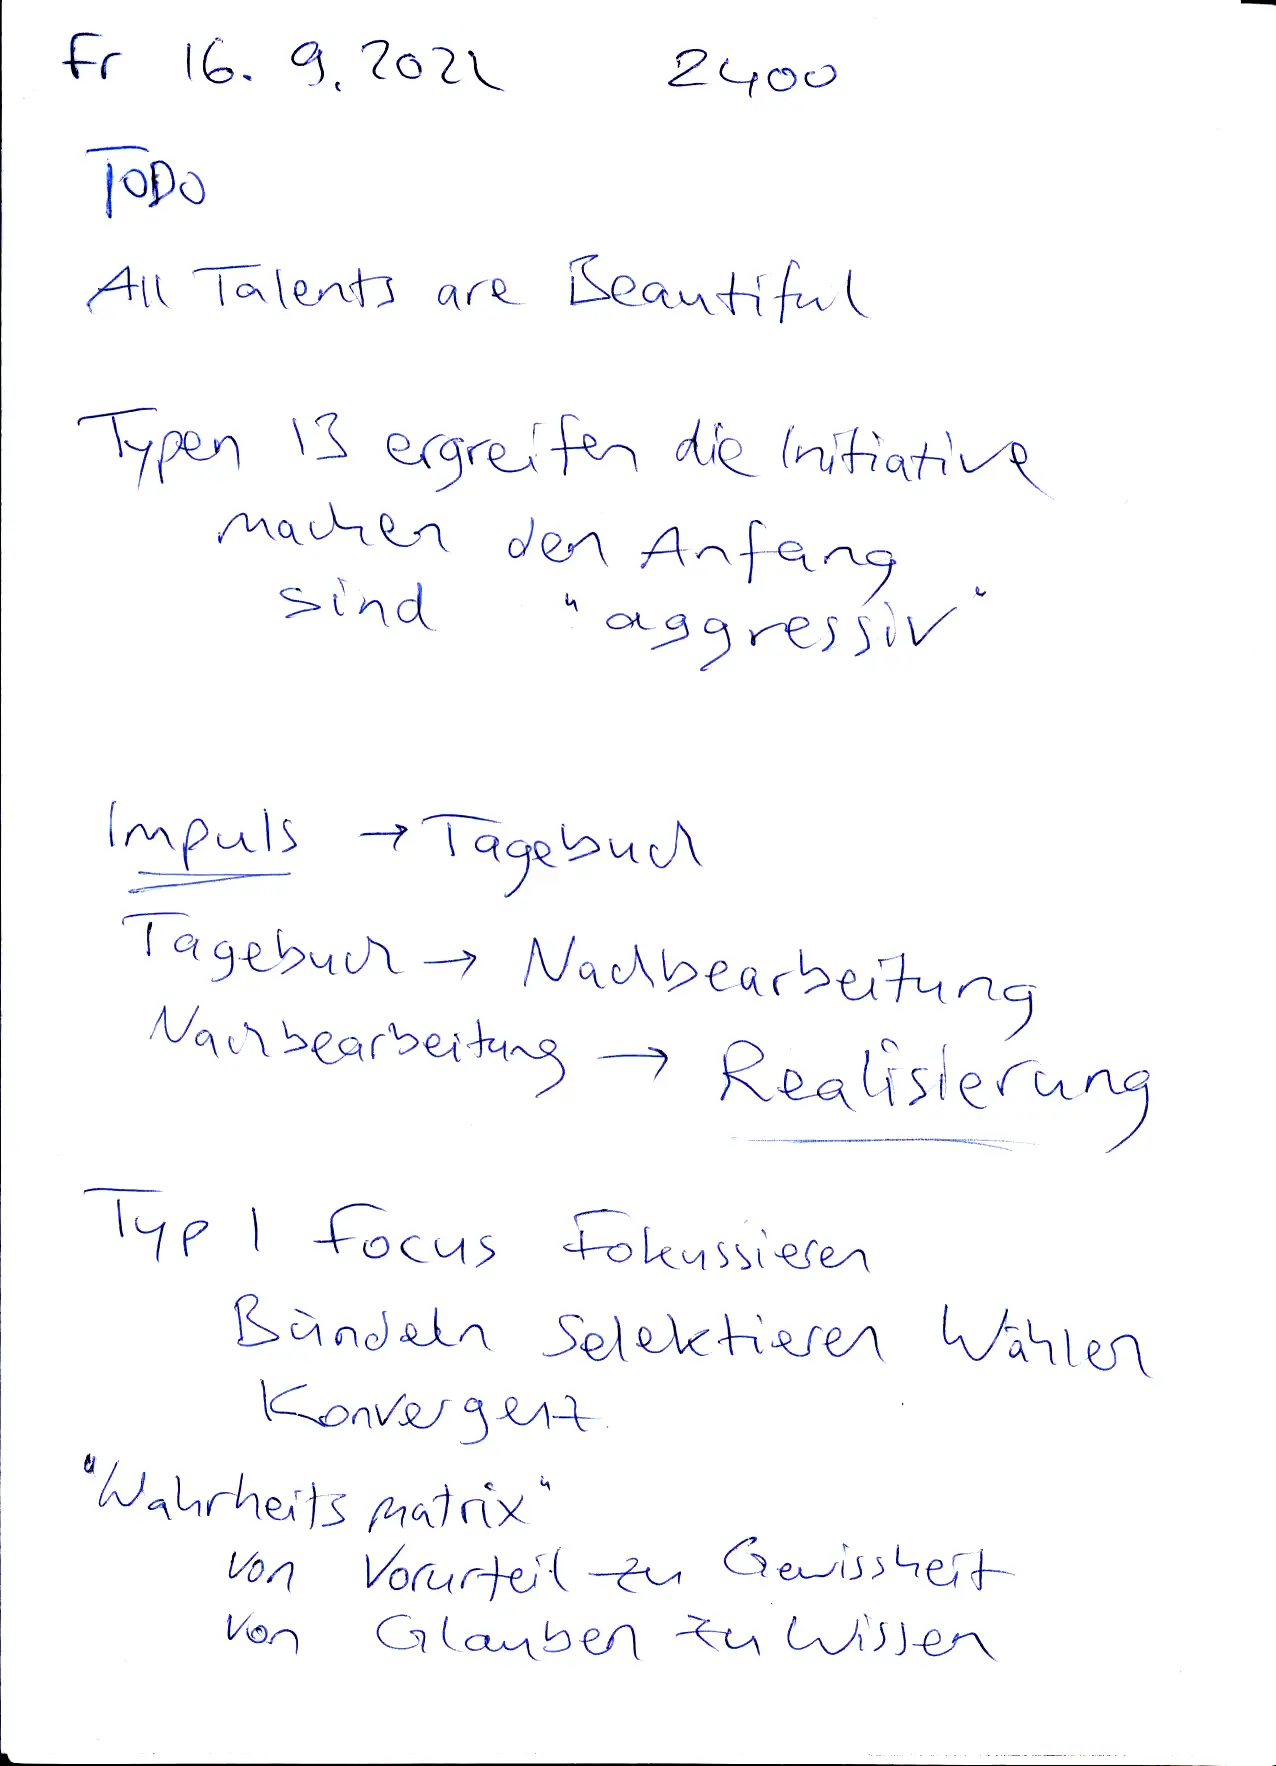 Fr 16. 9. 2022 2400
TODO
All Talents are Beautiful
Typen 13 ergreifen die Initiative
machen den Anfang
sind "aggressiv"
Impuls → Tagebuch
Tagebuch → Nachbearbeitung
Nachbearbeitung → Realisierung
Typ 1 Focus Fokussieren
Bündeln Selektieren Wählen
Konvergenz
"Wahrheitsmatrix"
von Vorurteil zu Gewissheit
von Glauben zu Wissen